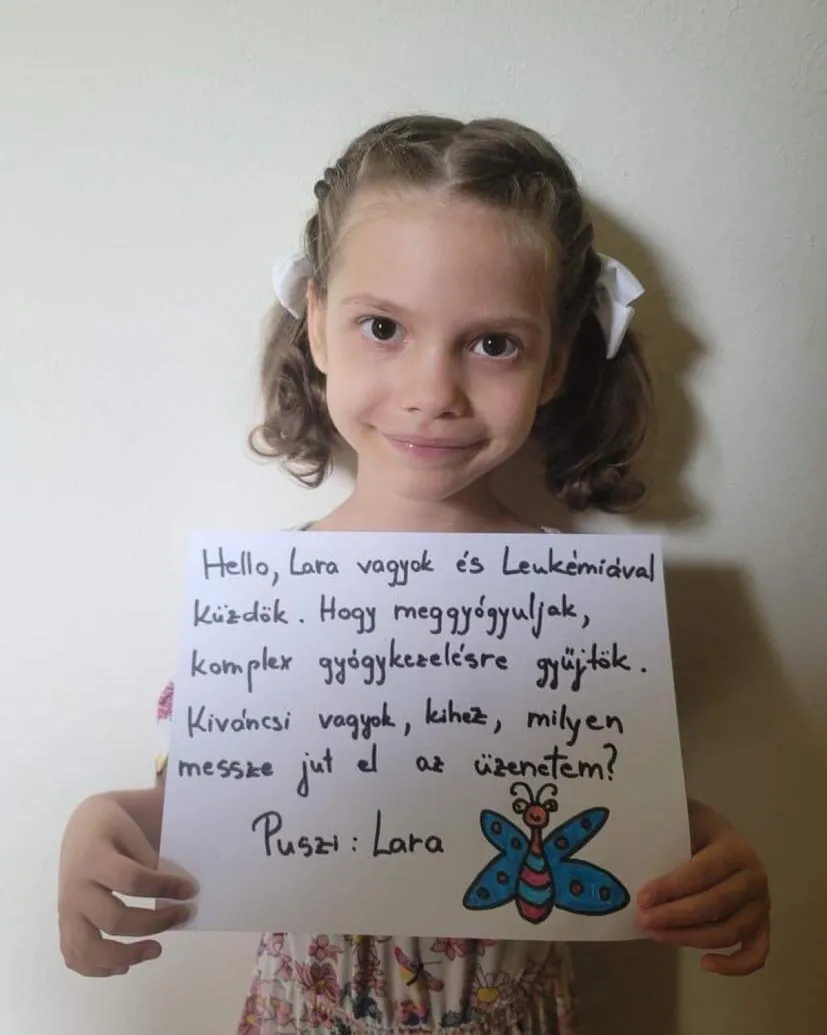 Hello, Lara vagyok és Leukémiával
küzdök. Hogy meggyógyuljak,
komplex gyógykezelésre gyűjtök.
Kiváncsi vagyok, kihez, milyen
messze jut el az üzenetem?
Puszi: Lara